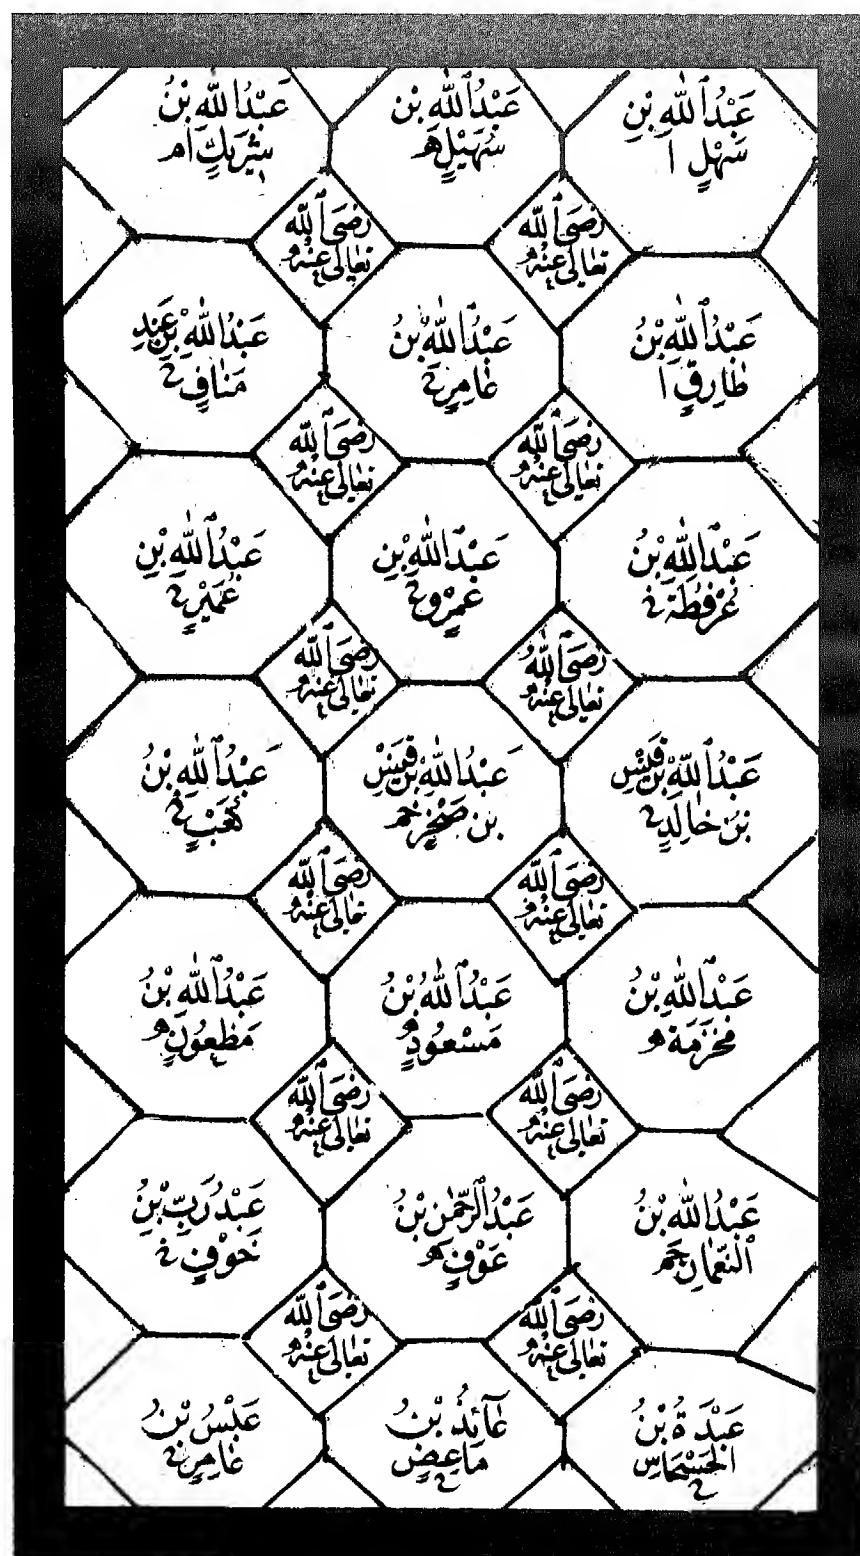 عَبْدُ ٱللّٰهِ بْنِ
سَهْلٍ ا
عَبْدُ ٱللّٰهِ بْن
سُهَيْلٍ ه
عَبْدُ ٱللّٰهِ بْنُ
شَرِيكٍ ا م
رَضِىَ ٱللّٰه
تعَالىٰ عنْهُ
رَضِىَ ٱللّٰه
تعَالىٰ عنْهُ
عَبْدُ ٱللّٰهِ بْنُ
طَارِقٍ ا
عَبْدُ ٱللّٰهِ بْنُ
عَامِرٍ خ
عَبْدُ ٱللّٰهِ بْنِ عَبْدِ
مَنَافٍ خ
رَضِىَ ٱللّٰه
تعَالىٰ عنْهُ
رَضِىَ ٱللّٰه
تعَالىٰ عنْهُ
عَبْدُ ٱللّٰهِ بْنُ
عُرْفُطَة خ
عَبْدُ ٱللّٰهِ بْنِ
عَمْرٍو خ
عَبْدُ ٱللّٰهِ بْنِ
عُمَيْرٍ خ
رَضِىَ ٱللّٰهُ
تعَالىٰ عنْهُ
رَضِىَ ٱللّٰه
تعَالىٰ عنْهُ
عَبْدُ ٱللّٰهِ بْنِ قَيْسِ
بْنُ خَالِدٍ خ
عَبْدُ ٱللّٰهِ بْنِ قَيْسِ
بن صَخْرٍ خم
عَبْدُ ٱللّٰهِ بْنُ
كَعْبٍ خ
رَضِىَ ٱللّٰه
تعَالىٰ عنْهُ
رَضِىَ ٱللّٰه
تعَالىٰ عنْهُ
عَبْدُ ٱللّٰهِ بْنُ
مَخْرَمَة ه
عَبْدُ ٱللّٰهُ بْنُ
مَسْعُودٍ ه
عَبْدُ ٱللّٰهِ بْنُ
مَظعُونٍ ه
رَضِىَ ٱللّٰه
تعَالىٰ عنْهُ
رَضِىَ ٱللّٰه
تعَالىٰ عنْهُ
عَبْدُ ٱللّٰهِ بْنُ
ٱلنّعْمَانِ خم
عَبْدُ ٱلرَّحْمٰنِ بْنُ
عَوْفٍ ه
عَبْدُ رَبِّ بْنِ
حَوْفٍ خ
رَضِىَ ٱللّٰه
تعَالىٰ عنْهُ
رَضِىَ ٱللّٰه
تعَالىٰ عنْهُ
عَبْدَةُ بْنُ
الحَسْحَاسِ خ
عَآئِذُ بْنُ
مَاعِصٍ خ
عَبْسُ بْنُ
عَامِرٍ خ